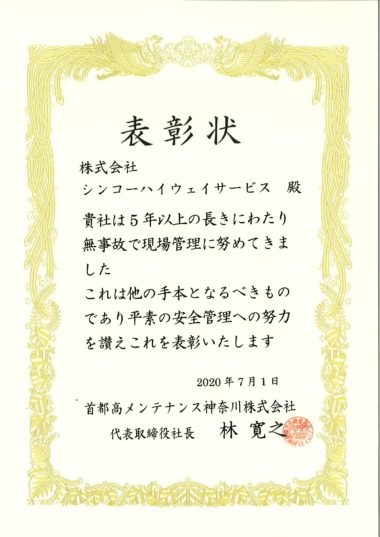 表彰状
株式会社
シンコーハイウェイサービス 殿
貴社は5年以上の長きにわたり
無事故で現場管理に努めてきま
した
これは他の手本となるべきもの
であり平素の安全管理への努力
を讃えこれを表彰いたします
2020年7月1日
首都高メンテナンス神奈川株式会社
代表取締役社長 林 寛之